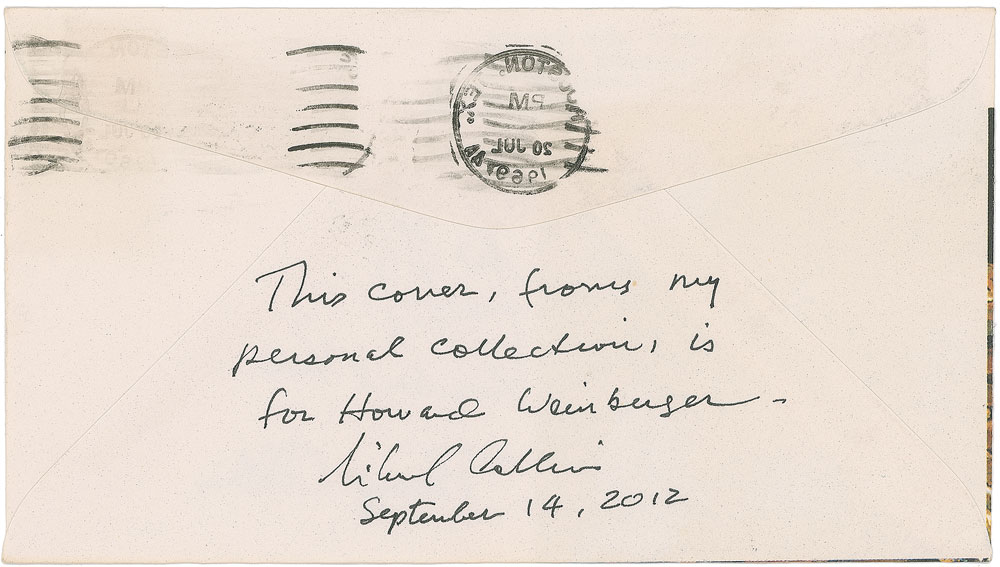 HOUSTON,
TEX.
PM
20 JUL
1969
This cover, from my
personal collection, is
for Howard Weinberger -
Michael Collins
September 14, 2012